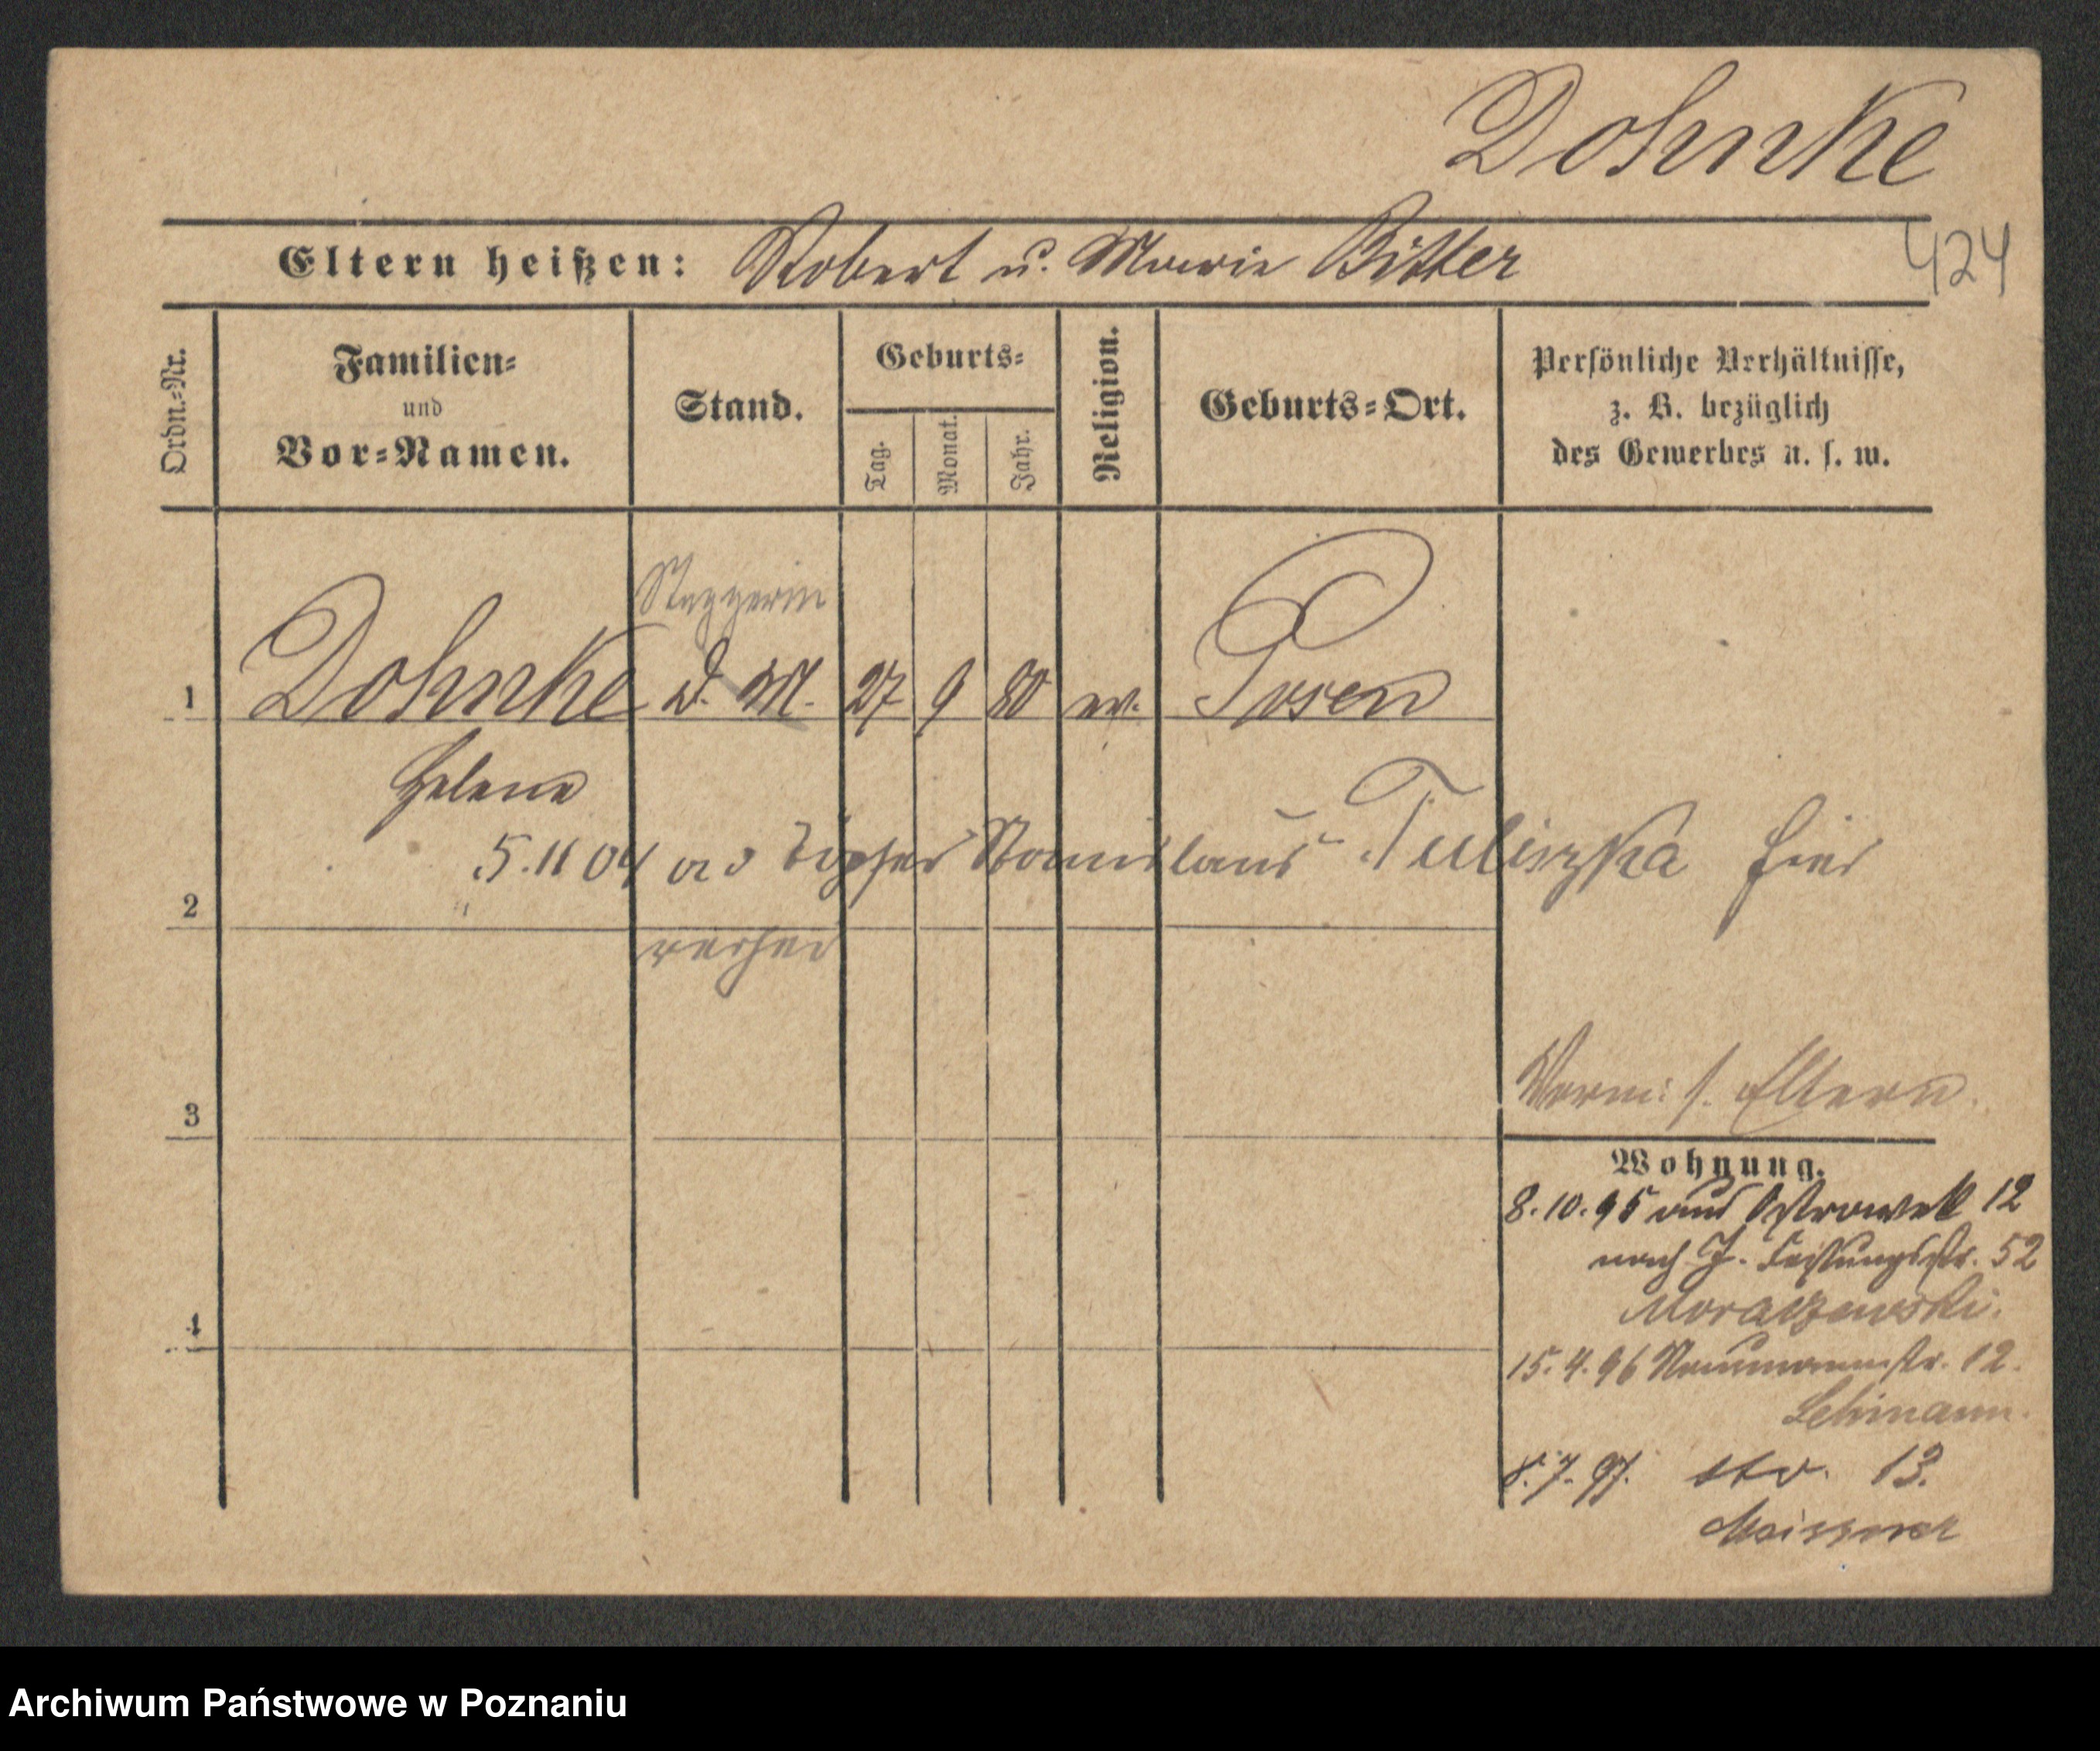 Dohnke
424
Eltern heißen: Robert u. Marie Bitter
Ordn.-Nr.
Familien-
und
Vor-Namen.
Stand.
Geburts-
Tag.
Monat.
Jahr.
Religion.
Geburts-Ort.
Persönliche Verhältnisse,
z. B. bezüglich
des Gewerbes u. s. w.
1 Dohnke d. M. 27 9 80 ev. Posen
Helene
5.11 04 a d Töpfer Stanislaus Tuliszka hier
2
verher
3
Vorm: s. Eltern.
Wohnung.
8.10.95 aus Ostrowek 12
nach J. Festungsstr. 52
Moraczewski.
15.4.96 Naumannstr. 12.
Lehmann.
4
8.7.97. 13.
Meissner
Archiwum Państwowe w Poznaniu